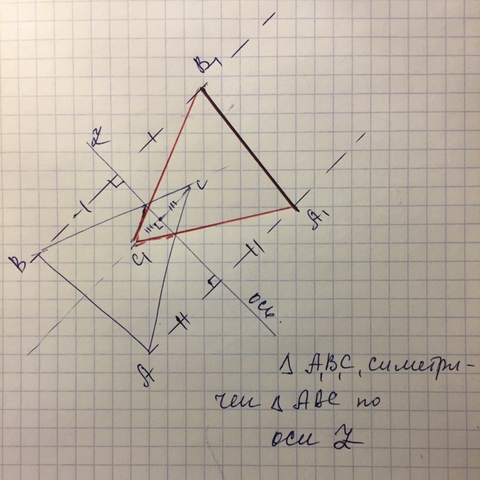 B₁
Z
C
B
C₁
A₁
ось.
A
Δ A₁B₁C₁ симетри-
чен Δ ABC по
оси Z